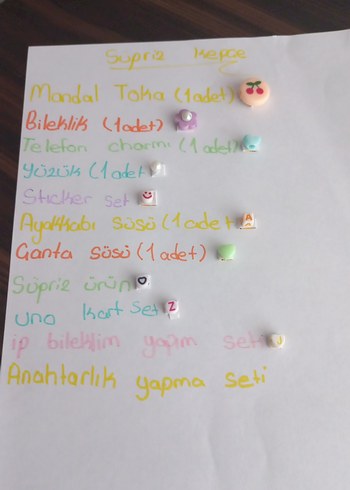 Süpriz kepçe
Mandal Toka (1 adet)
Bileklik (1 adet)
Telefon charmı (1 adet)
Yüzük (1 adet
Sticker set
Ayakkabı süsü (1 adet A
Çanta süsü (1 adet)
Süpriz ürün
uno kart set Z
ip bileklim yapım seti J
Anahtarlık yapma seti